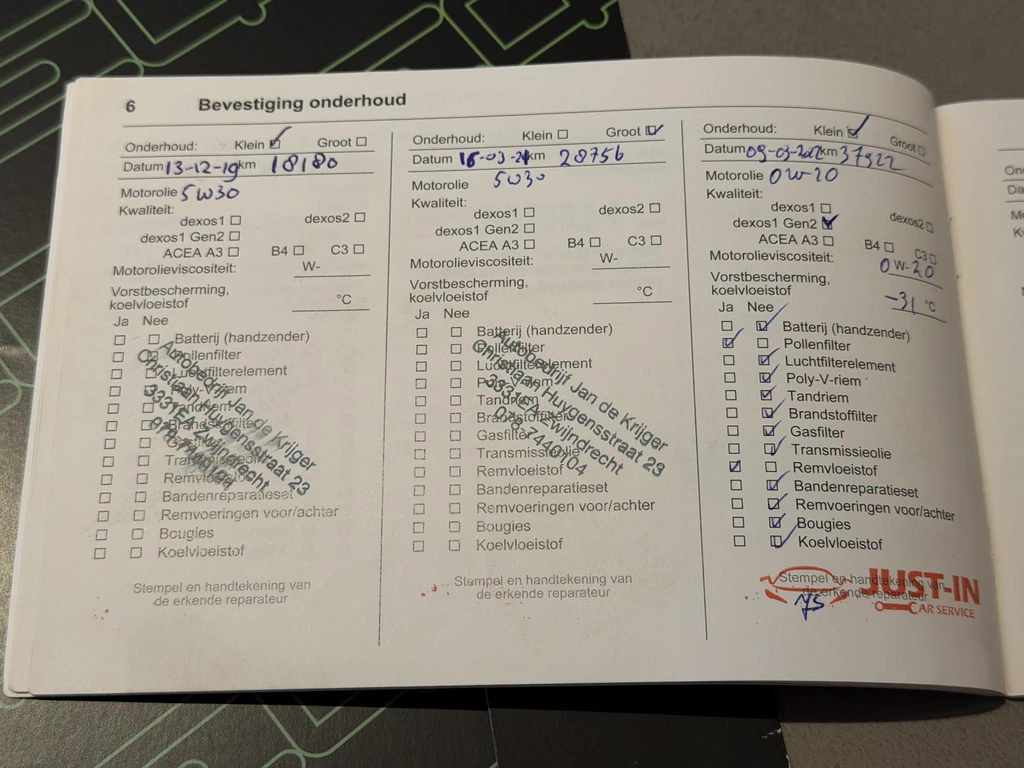 6 Bevestiging onderhoud
Onderhoud: Klein Groot
Datum 13-12-19 km 18180
Motorolie 5W30
Kwaliteit:
dexos1 dexos2
dexos1 Gen2
ACEA A3 B4 C3
Motorolieviscositeit:
W-
Vorstbescherming,
koelvloeistof °C
Ja Nee
Batterij (handzender)
Pollenfilter
Luchtfilterelement
Poly-V-riem
Tandriem
Brandstoffilter
Transmissieolie
Remvloeistof
Bandenreparatieset
Remvoeringen voor/achter
Bougies
Koelvloeistof
Autobedrijf Jan de Krijger
Christiaan Huygensstraat 23
3331EA Zwijndrecht
Stempel en handtekening van
de erkende reparateur
Onderhoud: Klein Groot
Datum 16-03-21 km 28756
Motorolie 5W30
Kwaliteit:
dexos1 dexos2
dexos1 Gen2
ACEA A3 B4 C3
Motorolieviscositeit:
W-
Vorstbescherming,
koelvloeistof °C
Ja Nee
Batterij (handzender)
Pollenfilter
Luchtfilterelement
Poly-V-riem
Tandriem
Brandstoffilter
Gasfilter
Transmissieolie
Remvloeistof
Bandenreparatieset
Remvoeringen voor/achter
Bougies
Koelvloeistof
Autobedrijf Jan de Krijger
Christiaan Huygensstraat 23
3331EA Zwijndrecht
Stempel en handtekening van
de erkende reparateur
Onderhoud: Klein Groot
Datum km 37922
Motorolie 0W-20
Kwaliteit:
dexos1 dexos2
dexos1 Gen2
ACEA A3 B4 C3
Motorolieviscositeit:
0W-20
Vorstbescherming,
koelvloeistof -31 °C
Ja Nee
Batterij (handzender)
Pollenfilter
Luchtfilterelement
Poly-V-riem
Tandriem
Brandstoffilter
Gasfilter
Transmissieolie
Remvloeistof
Bandenreparatieset
Remvoeringen voor/achter
Bougies
Koelvloeistof
Stempel en handtekening van
de erkende reparateur
JUST-IN
CAR SERVICE